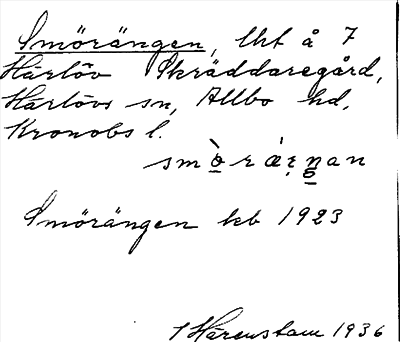 Smörängen, lht å 7
Härlöv Skräddaregård,
Härlövs sn, Allbo hd,
Kronobs l.
Smörängen kb 1923
I Härenstam 1936